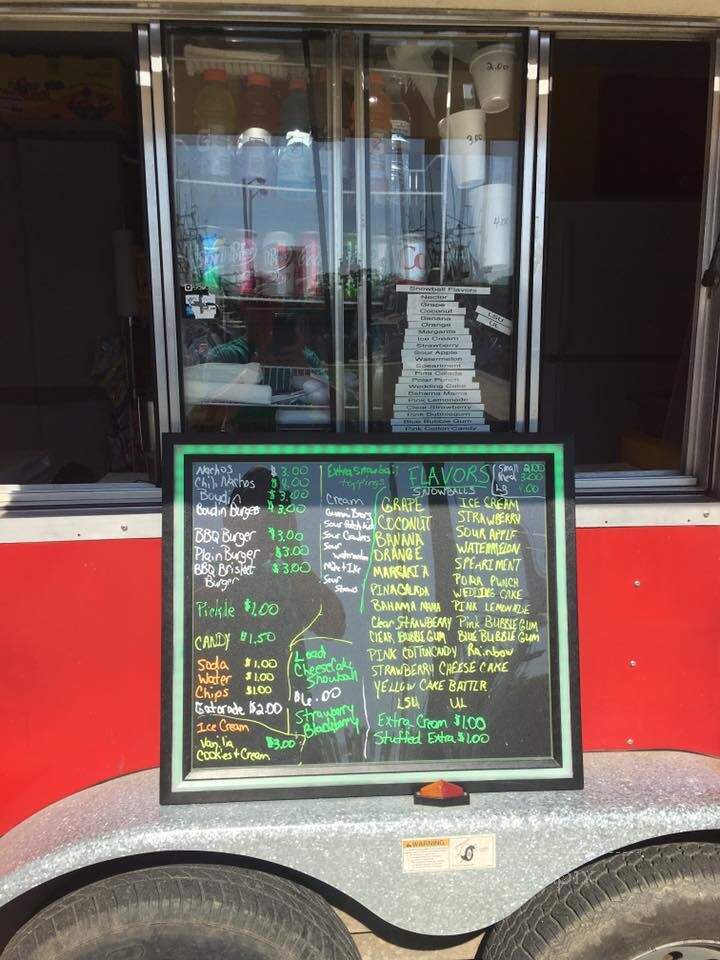 2.00
3.00
Snowball Flavors
Nector
Grape
Coconut
Banana
Orange
Margarita
Ice Cream
Strawberry
Sour Apple
Watermelon
Spearmint
Pina Colada
Polar Punch
Wedding Cake
Bahama Mama
Pink Lemonade
Clear Strawberry
Pink Bubblegum
Blue Bubble Gum
Pink Cotton Candy
LSU
UL
Nachos $3.00
Chili Nachos
Boudin $3.00
Boudin Burger $3.00
BBQ Burger $3.00
Plain Burger $3.00
BBQ Brisket $3.00
Burger
Pickle $1.00
CANDY $1.50
Soda $1.00
Water $1.00
Chips $1.00
Gatorade $2.00
Ice Cream
Vanilla $3.00
Cookies + Cream
Extra Snowball
toppings
Cream
Gummi Bears
Sour Patch Kids
Sour
Sour
watermelon
Mike + Ike
Sour
Straws
Load
Cheesecake
Snowball
$6.00
Strawberry
Blackberry
FLAVORS
SNOWBALLS
Small 2.00
Med 3.00
Lg
GRAPE ICE CREAM
COCONUT STRAWBERRY
BANANA SOUR APPLE
ORANGE WATERMELON
MARGARITA SPEARIMENT
PINACALADA PORA PUNCH
BAHAMA MAMA WEDDING CAKE
PINK LEMONADE
Clear STRAWBERRY Pink BUBBLEGUM
CLEAR BUBBLE GUM BLUE BUBBLE GUM
PINK COTTONCANDY Rainbow
STRAWBERRY CHEESE CAKE
YELLOW CAKE BATTER
LSU UL
Extra Cream $1.00
Stuffed Extra $1.00
WARNING